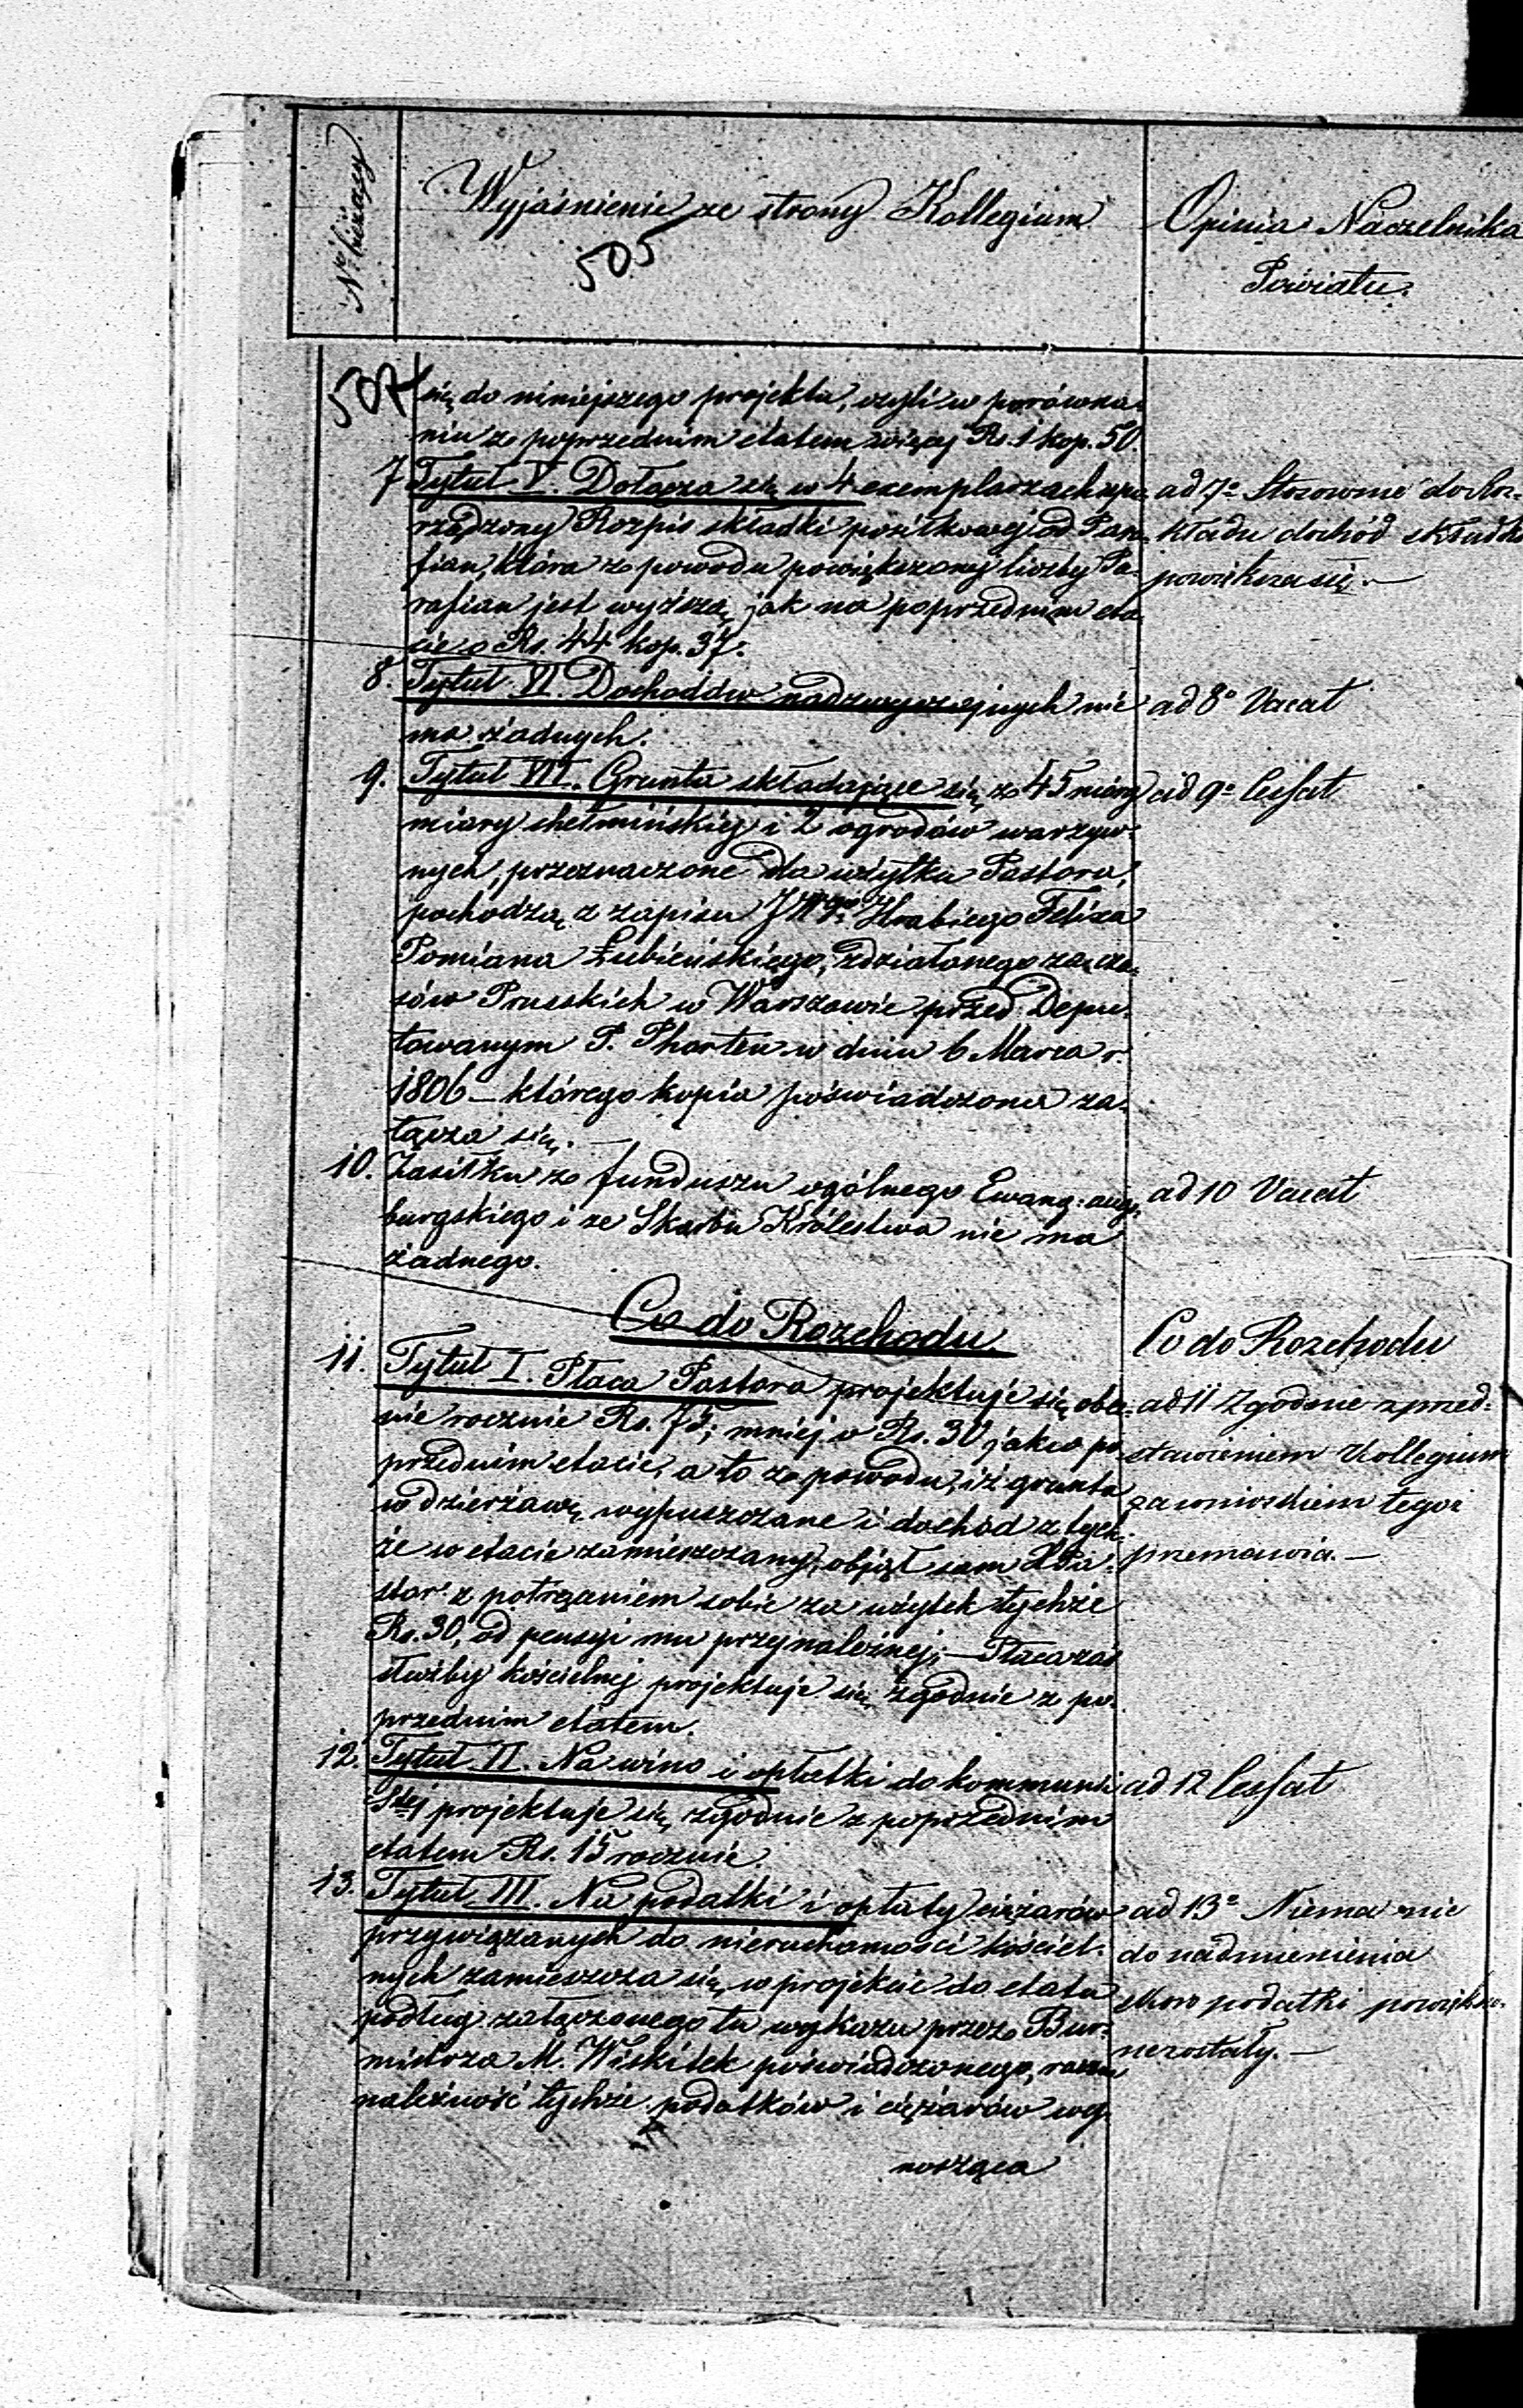 No bieżący
Wyjaśnienie ze strony Kollegium
505
Opinia Naczelnika
Powiatu.
507
się do niniejszego projektu, czyli w porówna-
niu z poprzednim etatem więcej Rs. 1 kop. 50.
7 Tytuł V. Dołącza się w 4 exemplarzach spo-
rządzony Rozpis składki posiłkowej od Para-
fian, która z powodu powiększonej liczby Pa-
rafian jest wyższą, jak na poprzednim eta-
cie o Rs. 44 kop. 37.
ad 7o Stosownie do Roz-
kładu dochód składki
powiększa się.—
8. Tytuł VI. Dochodów nadzwyczajnych nie
ma żadnych.
ad 8o Vacat
9. Tytuł VII. Grunta składające się z 45 mórg
miary chełmińskiej i 2 ogrodów warzyw-
nych, przeznaczone do użytku Pastora,
pochodzą z zapisu JWgo Hrabiego Felixa
Pomiana Łubieńskiego, zdziałanego za cza-
sów Pruskich w Warszawie przed Depu-
towanym P. Phorten w dniu 6 Marca r.
1806 – którego kopia poświadczona za-
łącza się.—
ad 9o Cessat
10. Zasiłku z funduszu ogólnego Ewang: augs-
burgskiego i ze Skarbu Królestwa nie ma
żadnego.
ad 10 Vacat
Co do Rozchodu
Co do Rozchodu
11. Tytuł I. Płaca Pastora projektuje się obec-
nie rocznie Rs. 75; mniej o Rs. 30 jak w po-
przednim etacie, a to z powodu, iż grunta
w dzierżawę wypuszczane i dochód z tych-
że w etacie zamieszczany, objął sam X Pa-
stor z potrąceniem sobie za użytek tychże
Rs. 30, od pensyi mu przynależnej; – Płaca zaś
służby kościelnej projektuje się zgodnie z po-
przednim etatem.
ad 11 Zgodnie z przed-
stawieniem Kollegium
za wnioskiem tegoż
przemawia.—
12. Tytuł II. Na wino i opłatki do kommunii
Stej projektuje się, zgodnie z poprzednim
etatem Rs. 15 rocznie.
ad 12 Cessat
13. Tytuł III. Na podatki i opłaty ciężarów
przywiązanych do nieruchomości kościel-
nych zamieszcza się w projekcie do etatu
podług załączonego tu wykazu przez Bur-
mistrza M. Wiskitek poświadczonego, razem
należność tychże podatków i ciężarów wy-
nosząca
ad 13o Niema nic
do nadmienienia
skoro podatki powiększo-
ne zostały.—